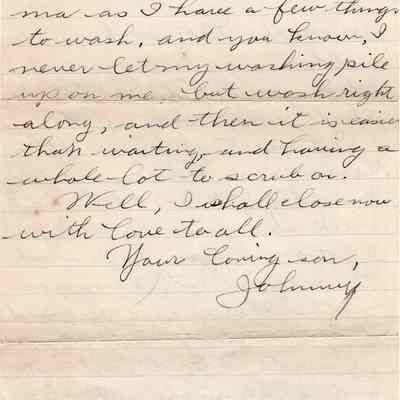 ma as I have a few things
to wash, and you know, I
never let my washing pile
up on me, but wash right
along, and then it is easier
than waiting, and having a
whole lot to scrub on.
Well, I shall close now
with love to all.
Your loving son,
Johnny